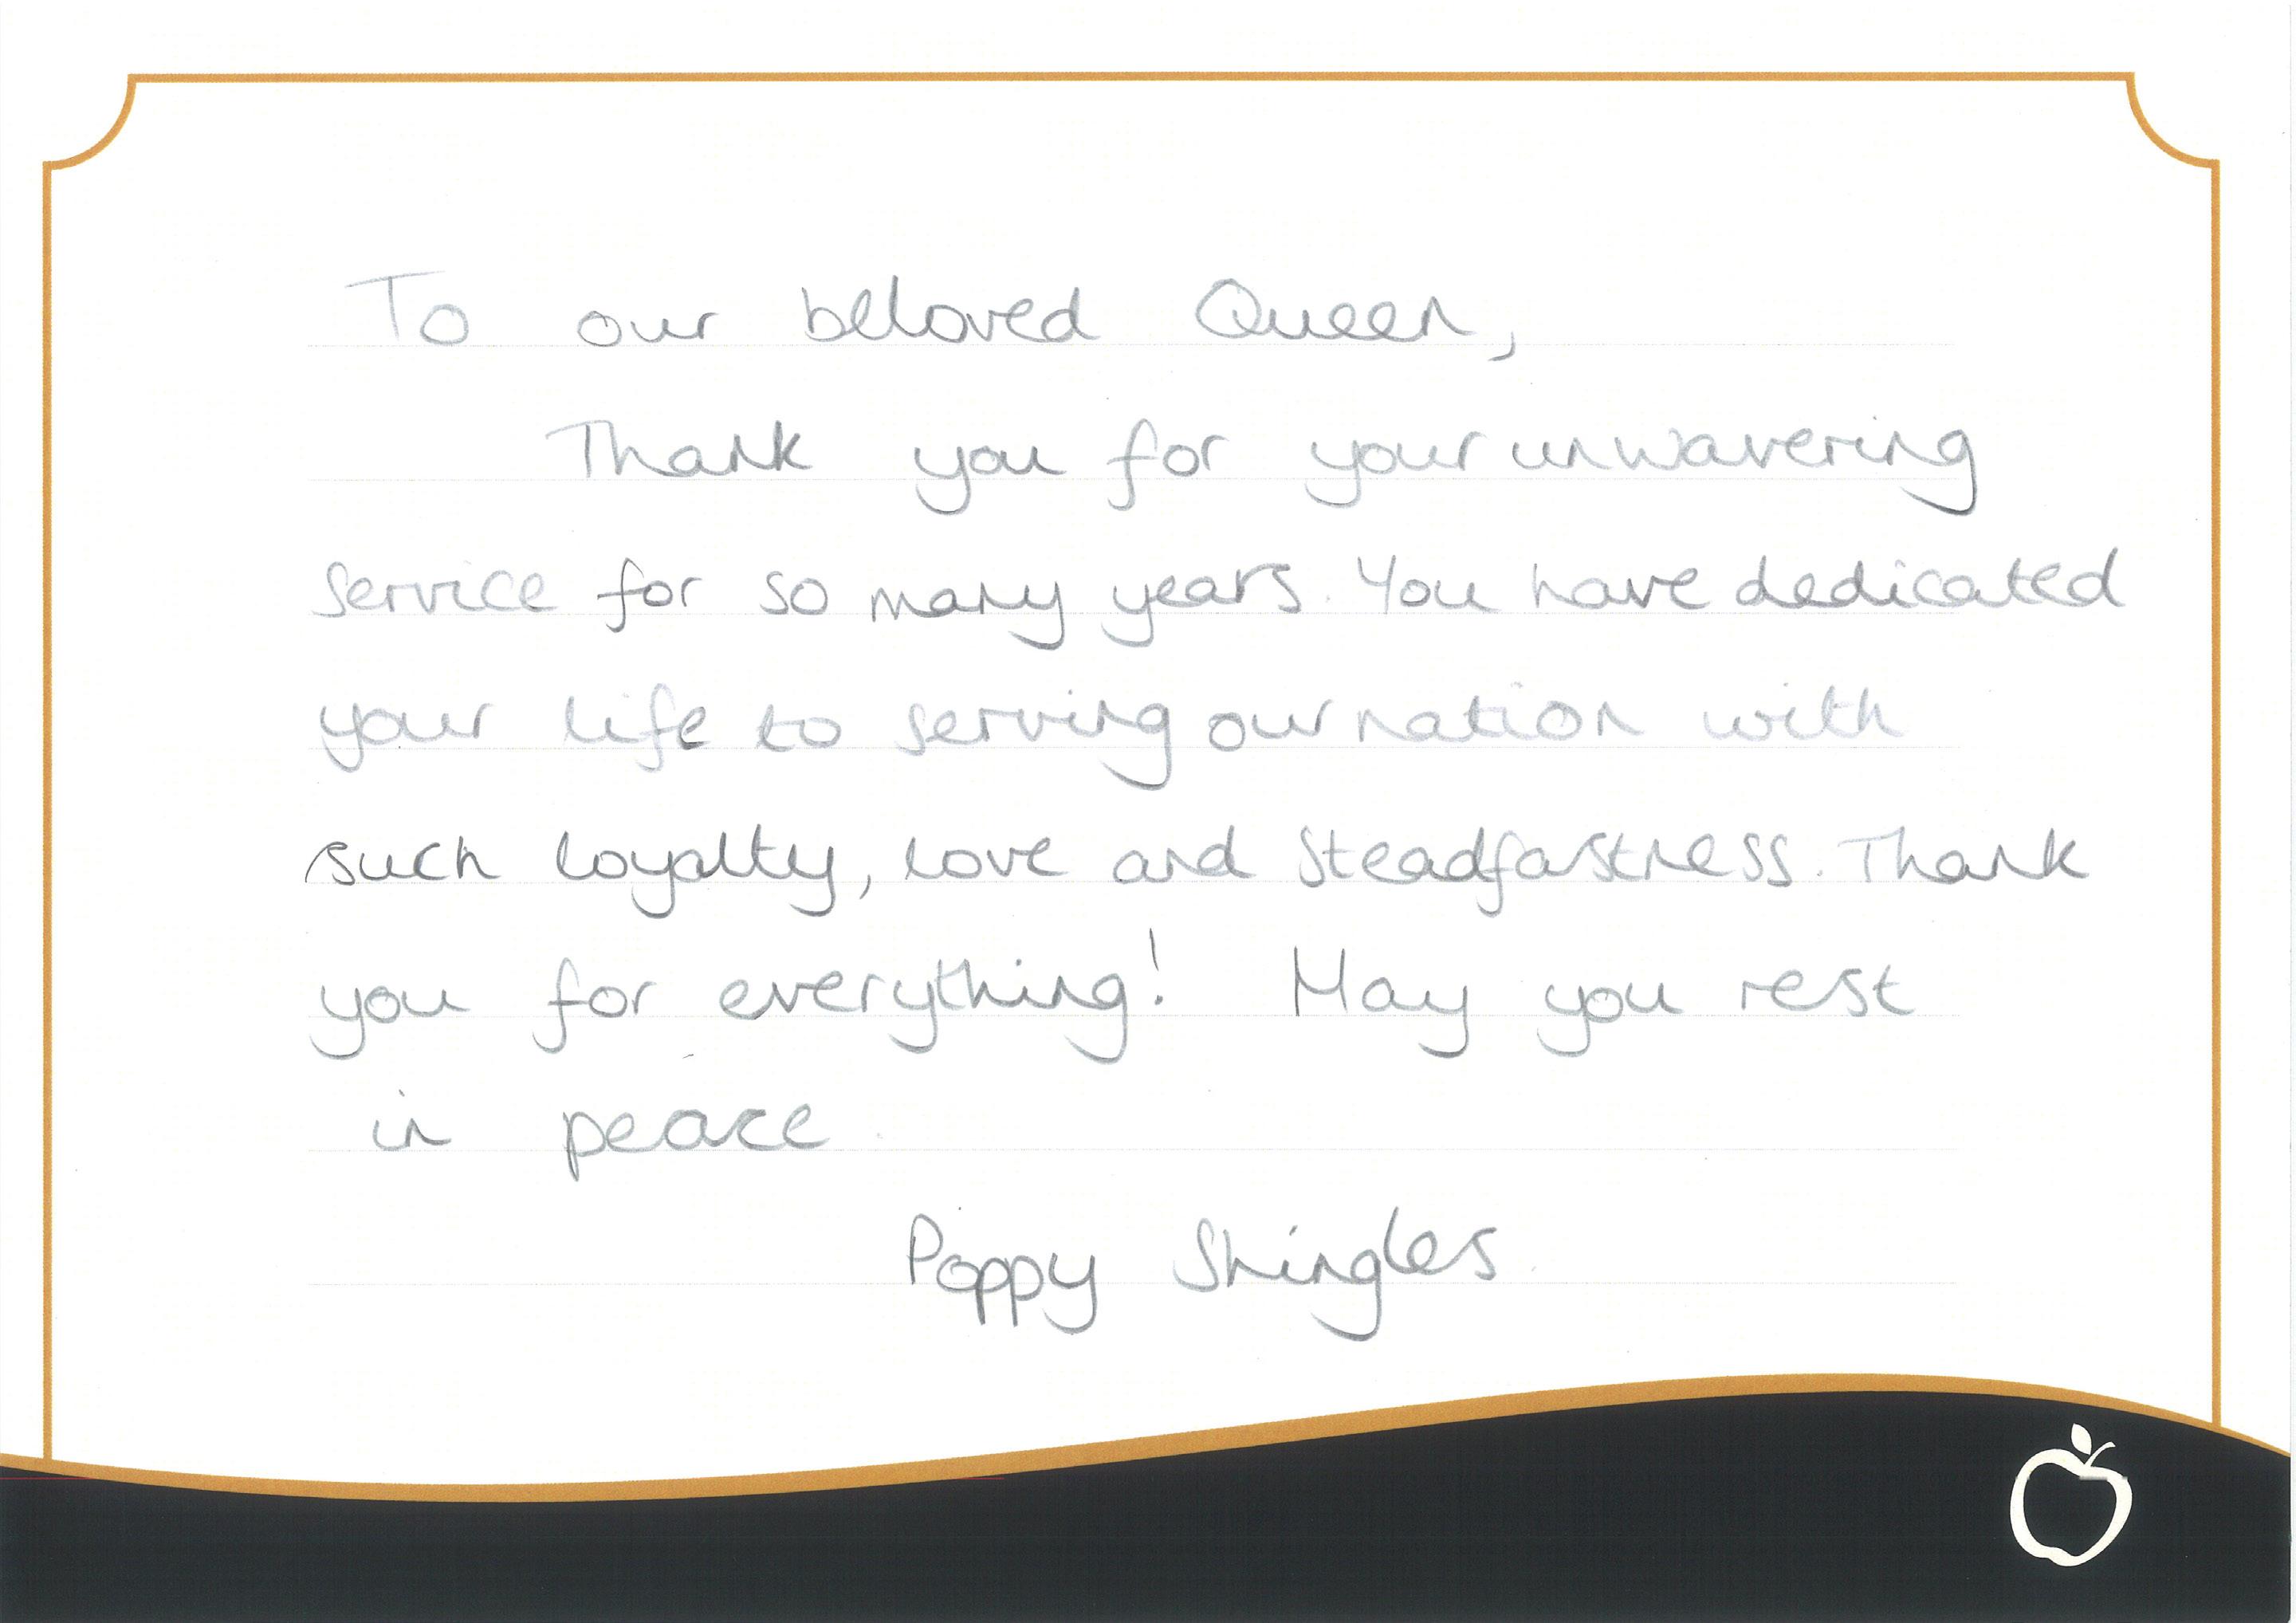 To our beloved Queen,
Thank you for your unwavering
service for so many years. You have dedicated
your life to serving our nation with
such loyalty, love and steadfastness. Thank
you for everything! May you rest
in peace.
Poppy Shingles